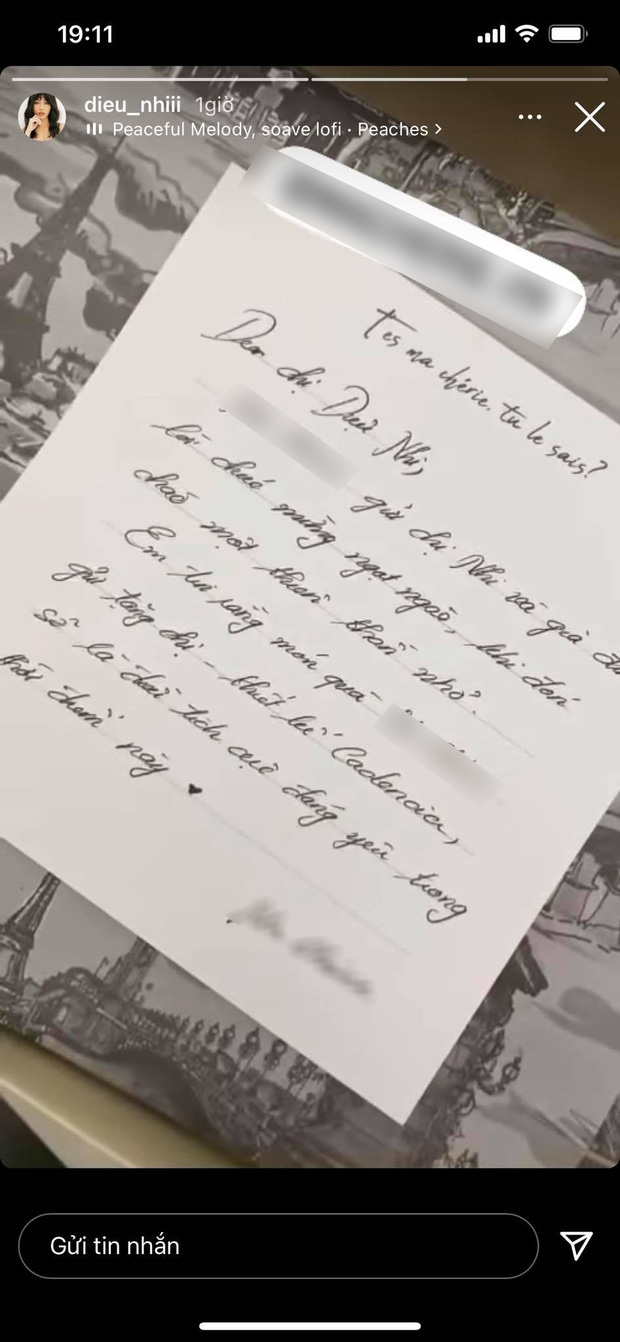 19:11
dieu_nhiii 1giờ
Peaceful Melody, soave lofi · Peaches >
T'es ma chérie. tu le sais?
Dear chị Diệu Nhi,
gửi chị Nhi và gia đì
lời chúc mừng ngọt ngào, khi đón
chào một thiên thần nhỏ.
Em tin rằng món quà
gửi tặng chị - thiết kế Cadencia,
sẽ là dấu tích cực đáng yêu trong
thời điểm này ♥
Gửi tin nhắn